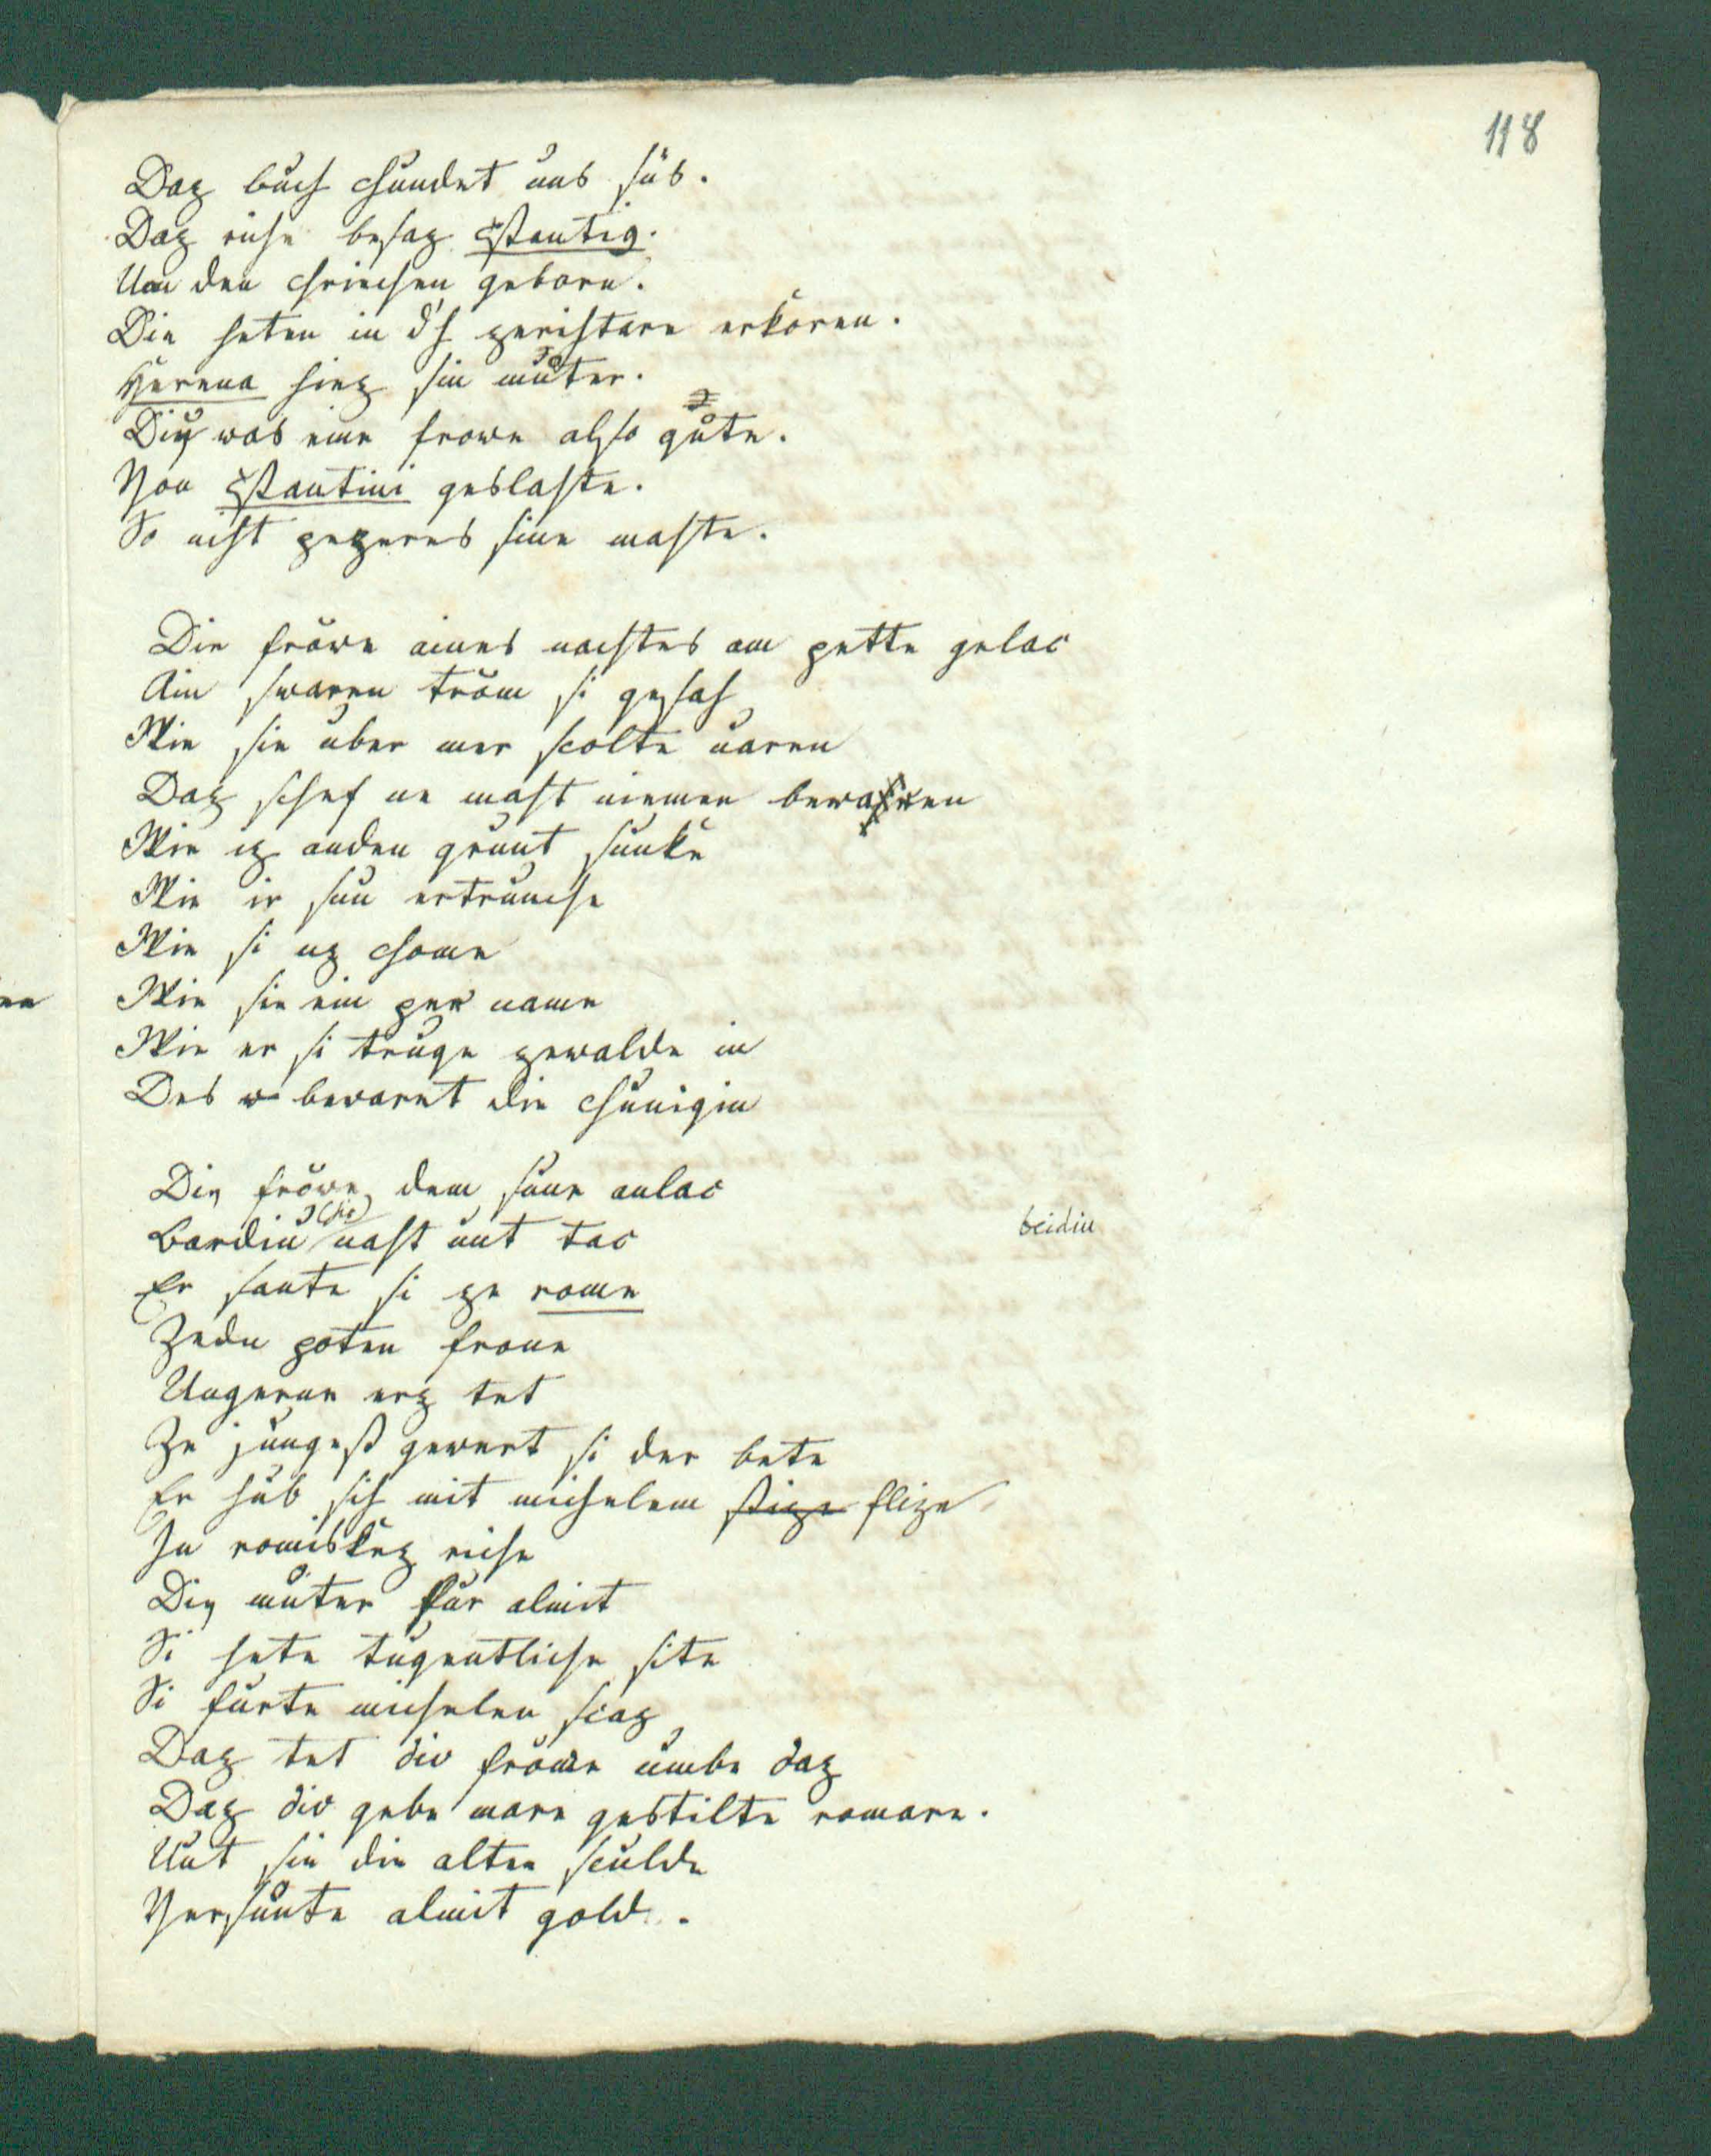 118
Daz buch chundet uns sus.
Daz riche besaz ɔstantiq.
Uon den chriechen geborn.
Die heten in d'h zerihtare erkoren.
Herena hiez sin muͦter.
Diu was eine frowe also guͦte.
Von ɔstantini geslahte.
So niht pezeres sine mahte.
Die frŏwe aines nachtes am pette gelac
Ain swaren trŏm si gesah
Wie sie uber mer scolte uaren
Daz schef ne maht niemen bewaren
Wie iz anden grunt sunke
Wie ir sun ertrunche
Wie si uz chome
Wie sie ein per name
Wie er si truge zewalde in
Des bewaret die chunigin
Diu frŏwe dem sune anlac
Bardiu (sic) naht unt tac
beidiu
Er sante si ze rome
Zedu poten frone
Ungerne erz tet
Ze jungest gewert si der bete
Er hub sih mit michelem stize flize
In romiskez riche
Diu muͦter fur almit
Si hete tugentliche site
Si furte michelen scaz
Daz tet div frŏwe umbe daz
Daz div gebe mare gestilte romare.
Unt sie die alten sculde
Versunte almit gold.